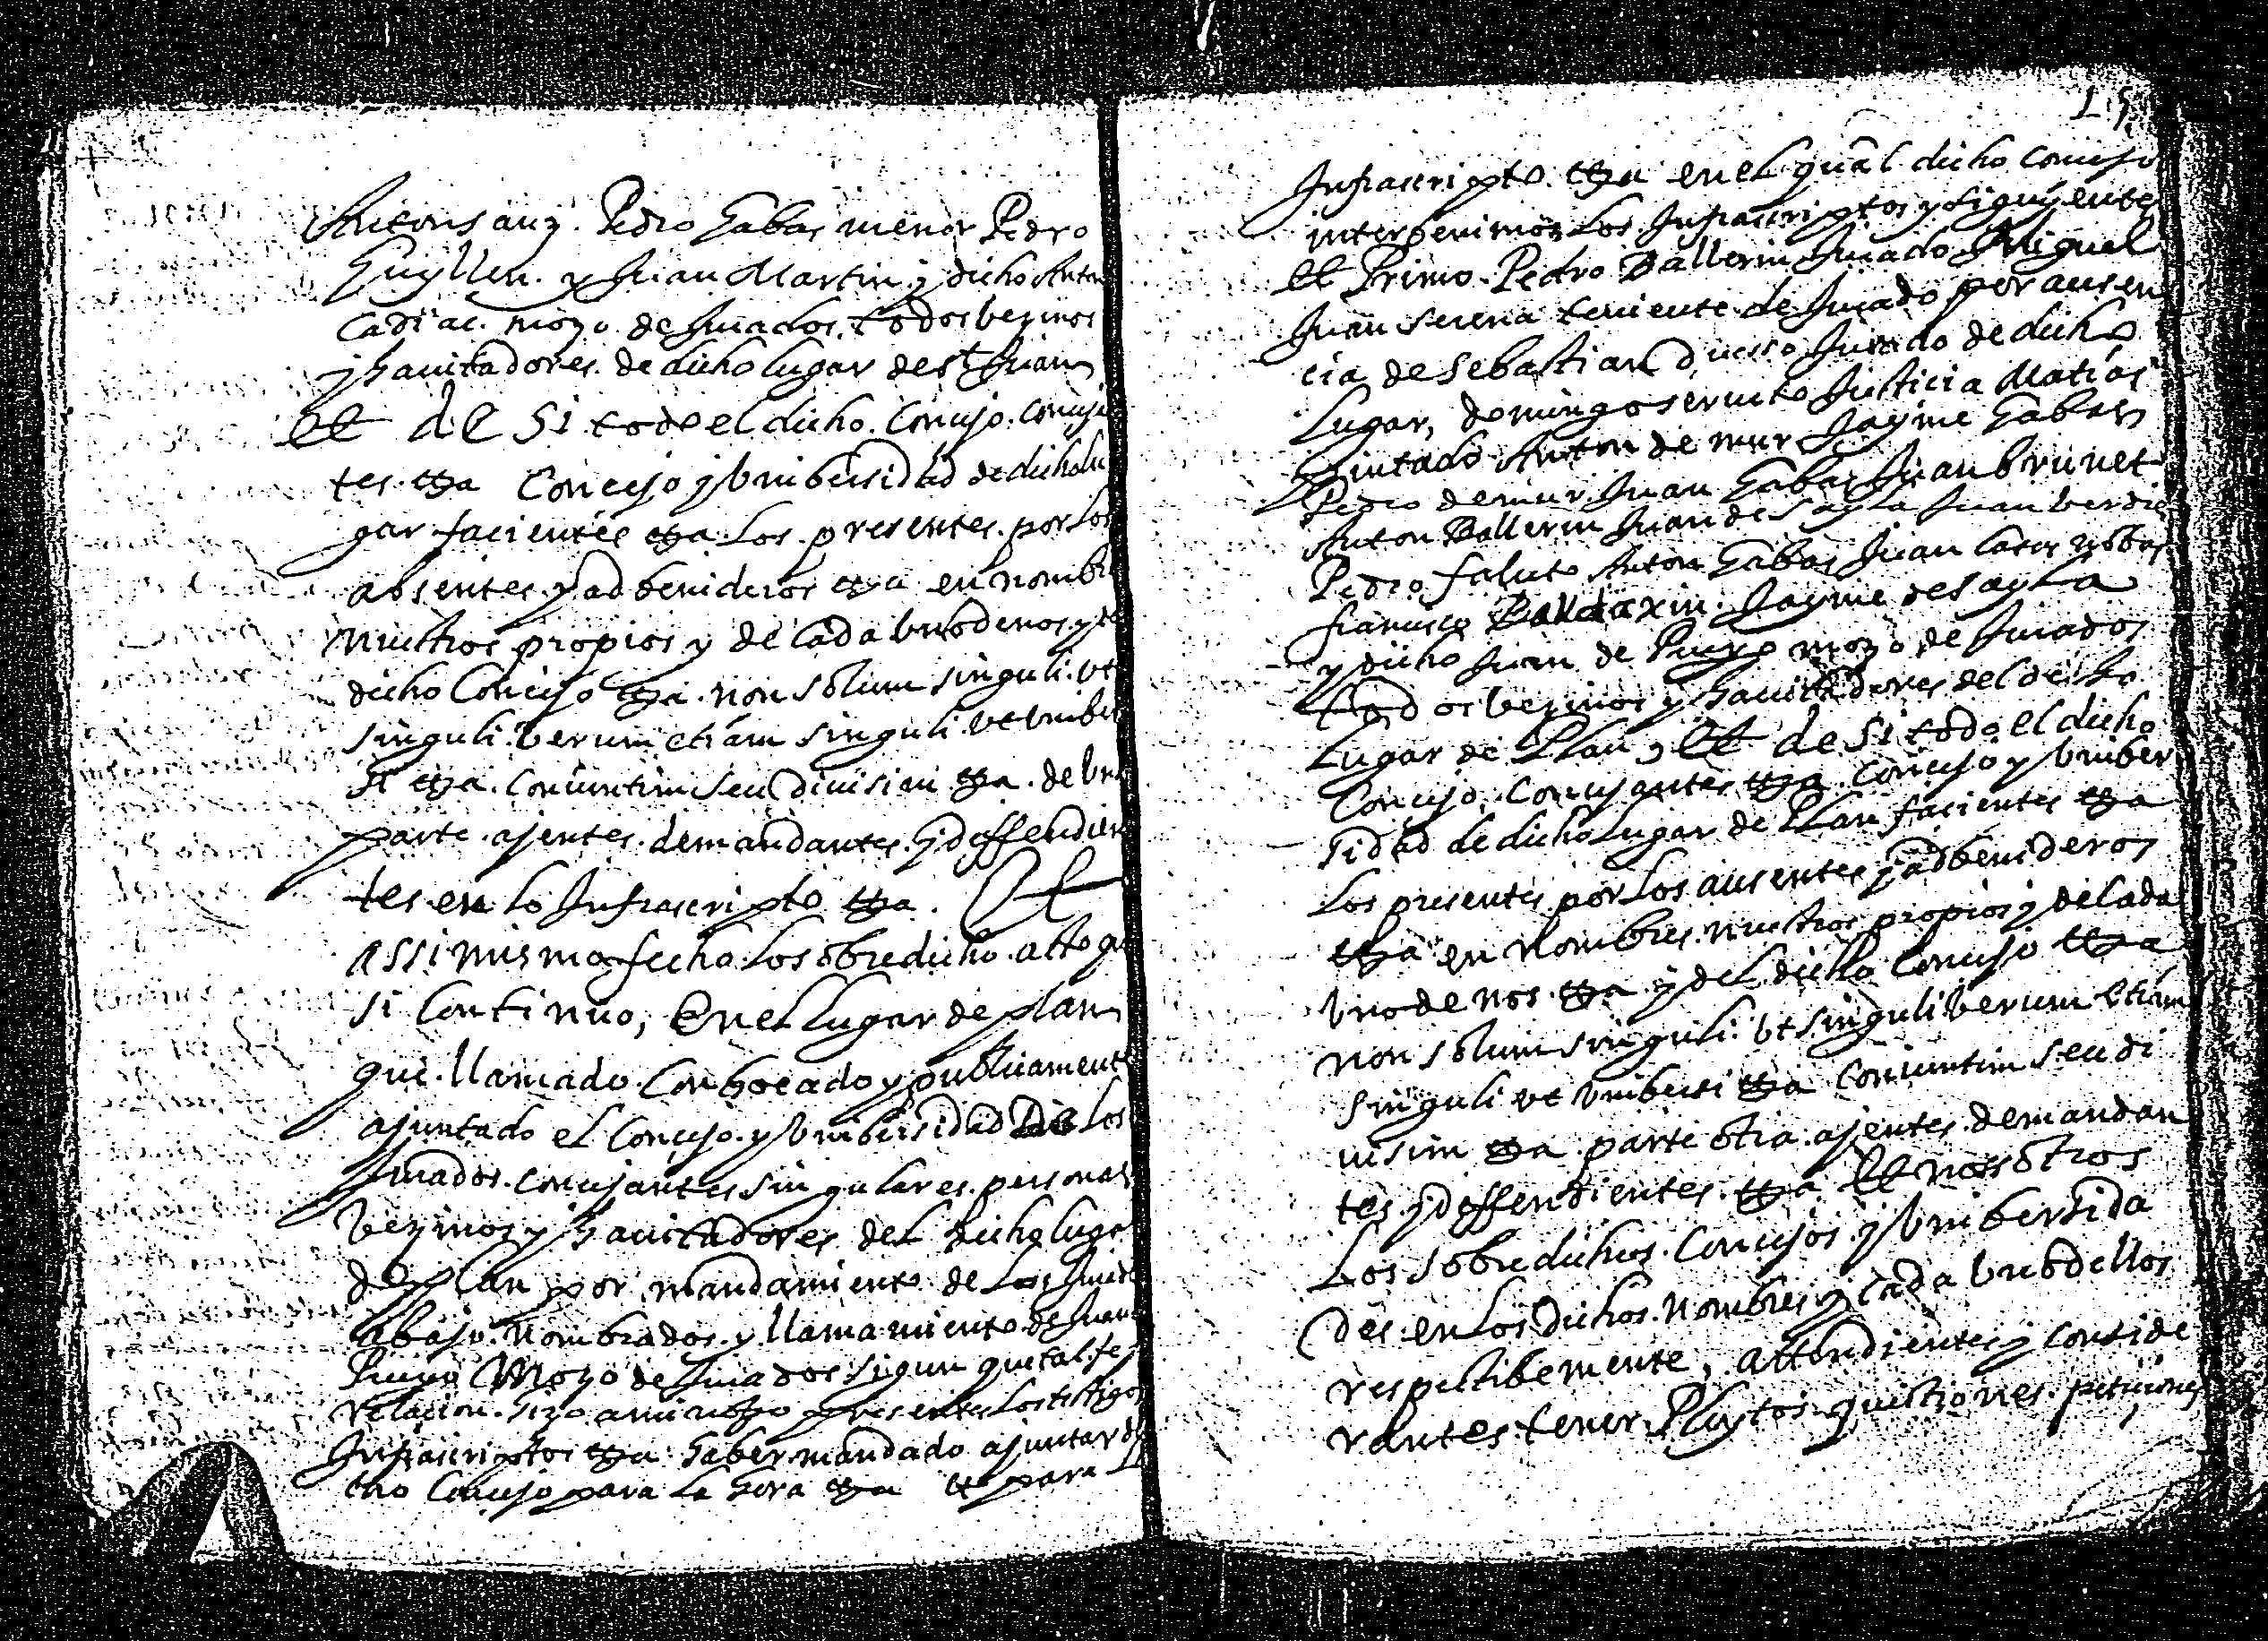 Anton Sanz. Pedro Gabas menor Pedro
Guyllen. y Juan Martin y dicho Anton
Cadiac. mozo de Jurados todos bezinos
y hauitadores. de dicho lugar de st Juan
Et de si todo el dicho. Concejo. conceja
tes. etza Concejo y Unibersidad de dicho lu
gar facientes etza. Los. presentes. por Los
absentes. y adbenideros etza en nombre
nuestros propios y de Cada Uno de nos y de
dicho Concejo etza. non solum singuli. Ut
singuli. Verum etiam singuli. Ut Uniber
si etza. coniuntim seu diuisim etza. de Una
parte. ajentes. demandantes. y deffendien
tes en lo Infrascripto etza. Et
assi mismo fecho Lo sobredicho. acto qua
si Continuo, En el Lugar de plan
que. llamado. Conbocado y publicamente
ajuntado el Concejo. y Unibersidad de Los
Jurados. concejantes singulares. personas
Vezinos y hauitadores del dicho lugar
de plan por mandamiento de Los Jurados
abajo. nombrados. y llamamiento de Juan
Pueyo Mozo de Jurados. sigun que tal fe y
relacion. hizo a mi notro presentes Los testigos
Infrascriptos etza haber mandado ajuntar di
cho Concejo para La hora etza et para L
Infrascripto. etza en el qual dicho concejo
interbenimos Los Infrascriptos y siguyentes
Et Primo. Pedro Ballerin Jurado Miguel
Juan Serena teniente de Jurado por ausen
cia de Sebastian Jurado de dicho
Lugar, domingo seruito Justicia Matias
Pintado Anton de mur Jayme Gabas
Pedro de mur Juan Gabas Juan brunet
Anton Ballerin Juan de Sayla Juan berdie
Pedro faluto Anton Gabas Juan
francisco Baldaxin. Jayme de Sayla
y dicho Juan de Pueyo mozo de Jurados
todos bezinos y hauitadores del dicho
Lugar de Plan, Et de si todo el dicho
Concejo, concejantes etza concejo y Uniber
sidad de dicho lugar de Plan facientes etza
Los presentes por Los ausentes y adbenideros
etza en nombres. nuestros propios y de Cada
Uno de nos etza y del dicho Concejo etza
non solum singuli. Ut singuli verum etiam
singuli ut Unibersi etza coniuntim seu di
uisim etza parte otra. ajentes. demandan
tes y deffendientes. etza Et nossotros
Los sobredichos. Concejos. y Unibersida
des en los dichos. nombres y cada Uno dellos
respectibemente, attendientes y conside
rantes tener. Pleytos. questiones. peticiones